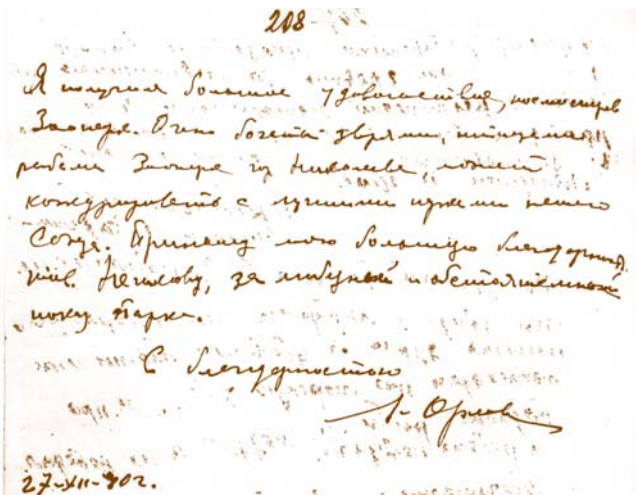 208
Я получил большое удовольствие, посмотрев
Зоопарк. Очень богата зверями, птицами
рыбами Зоопарк гор Николаева, может
конкурировать с лучшими парками нашего
Союза. Приношу мою большую благодарность
тов. за любезный и обстоятельный
показ Парка.
С благодарностью
Орлов
27-XII-70г.